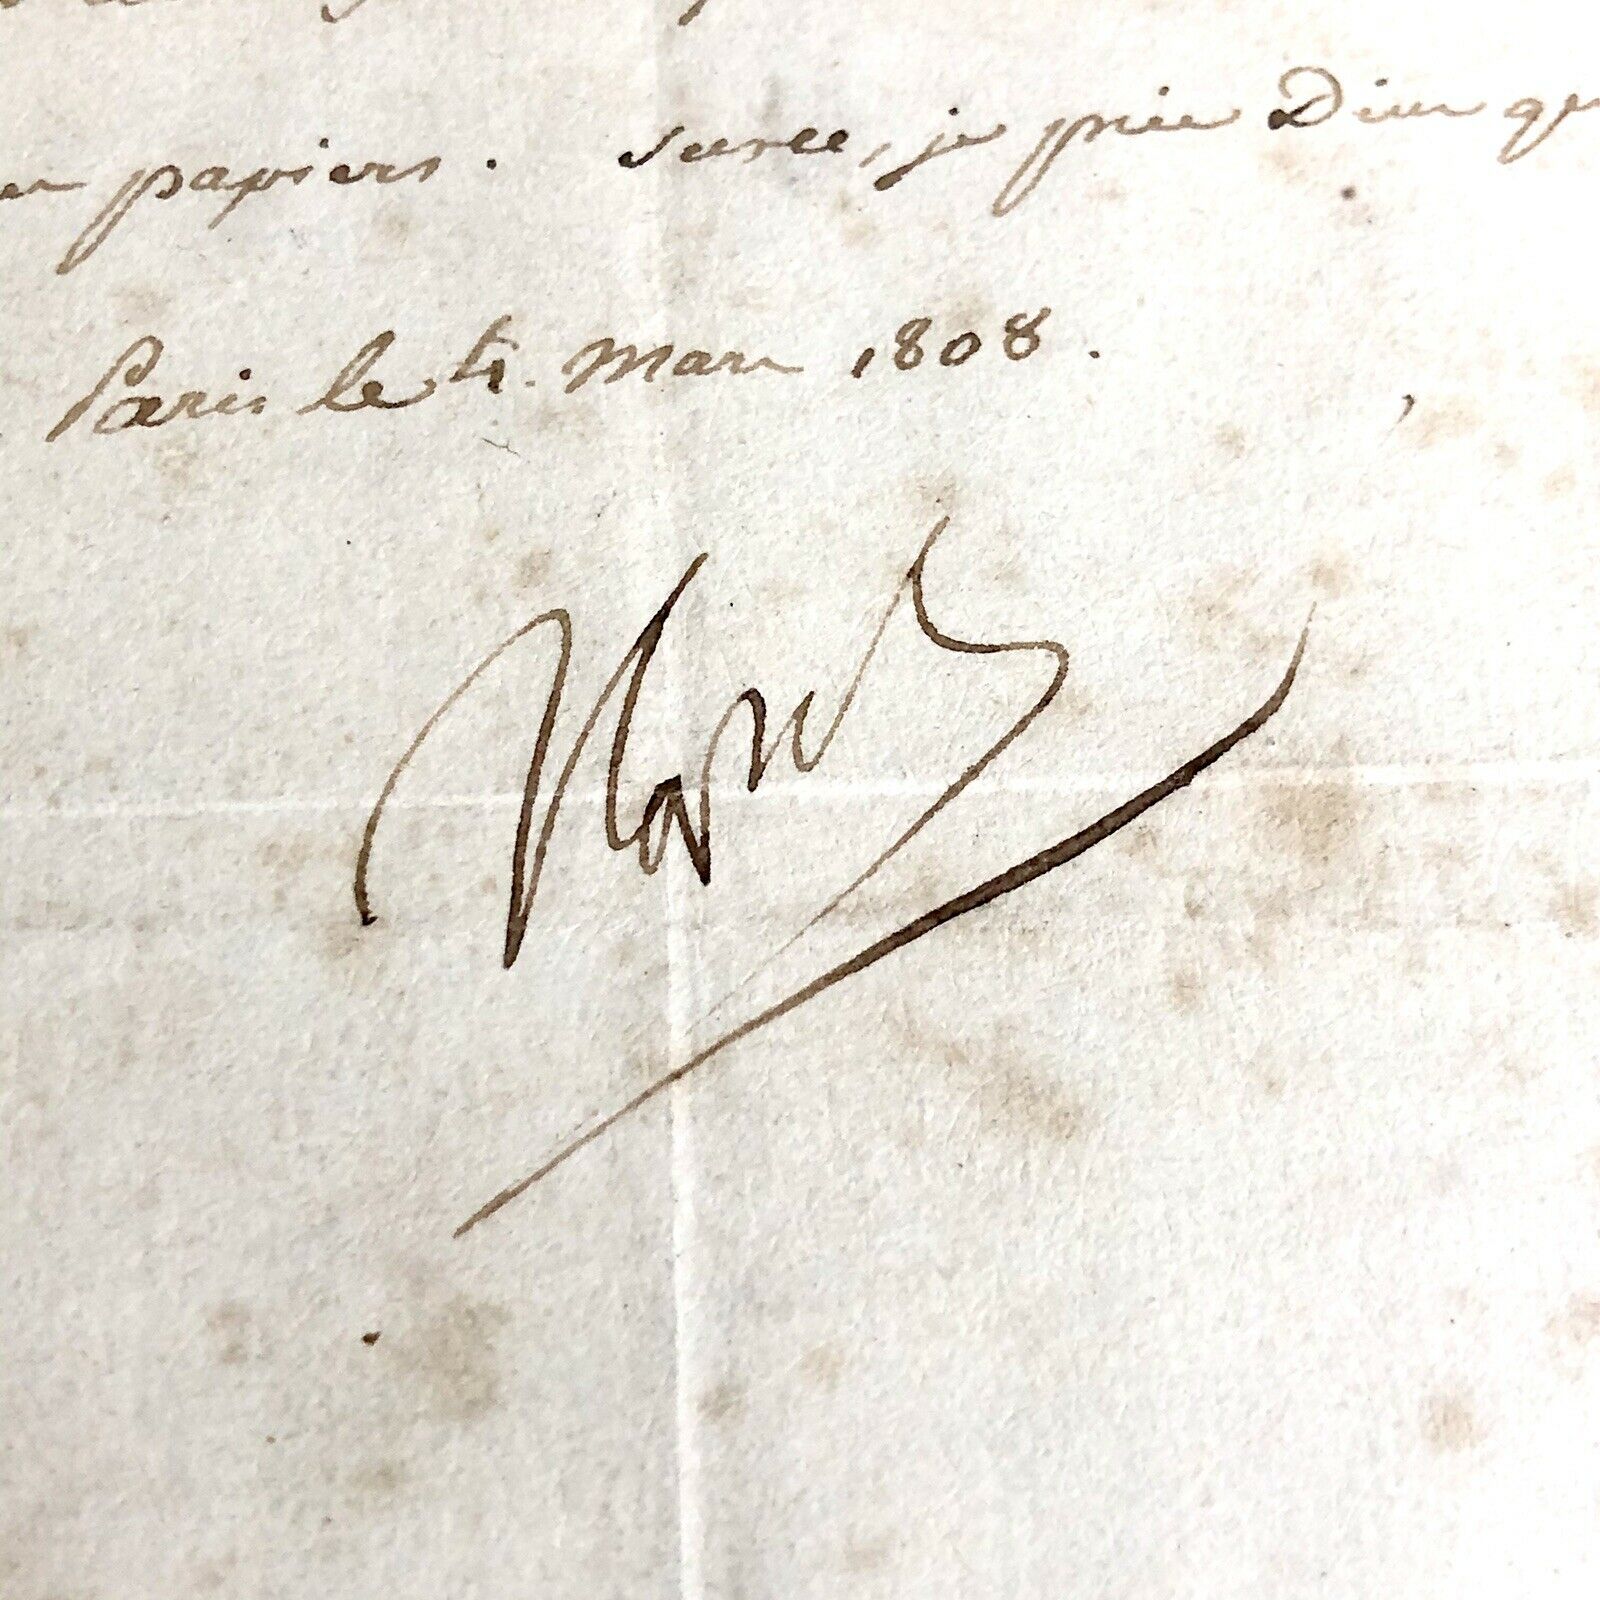 papiers. surce, je prie Dieu qu
Paris le 4. Mars 1808.
Nap